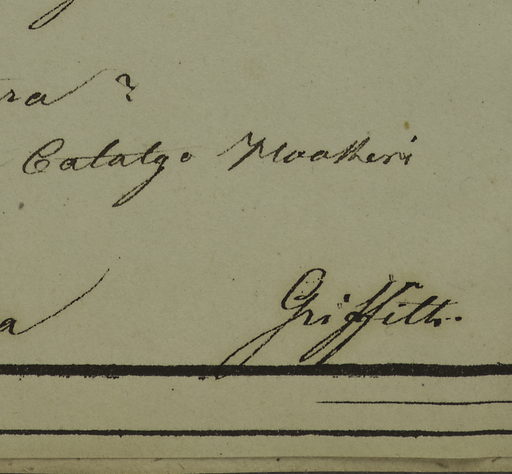 ra ?
Catalgo Noatheri
a Griffith